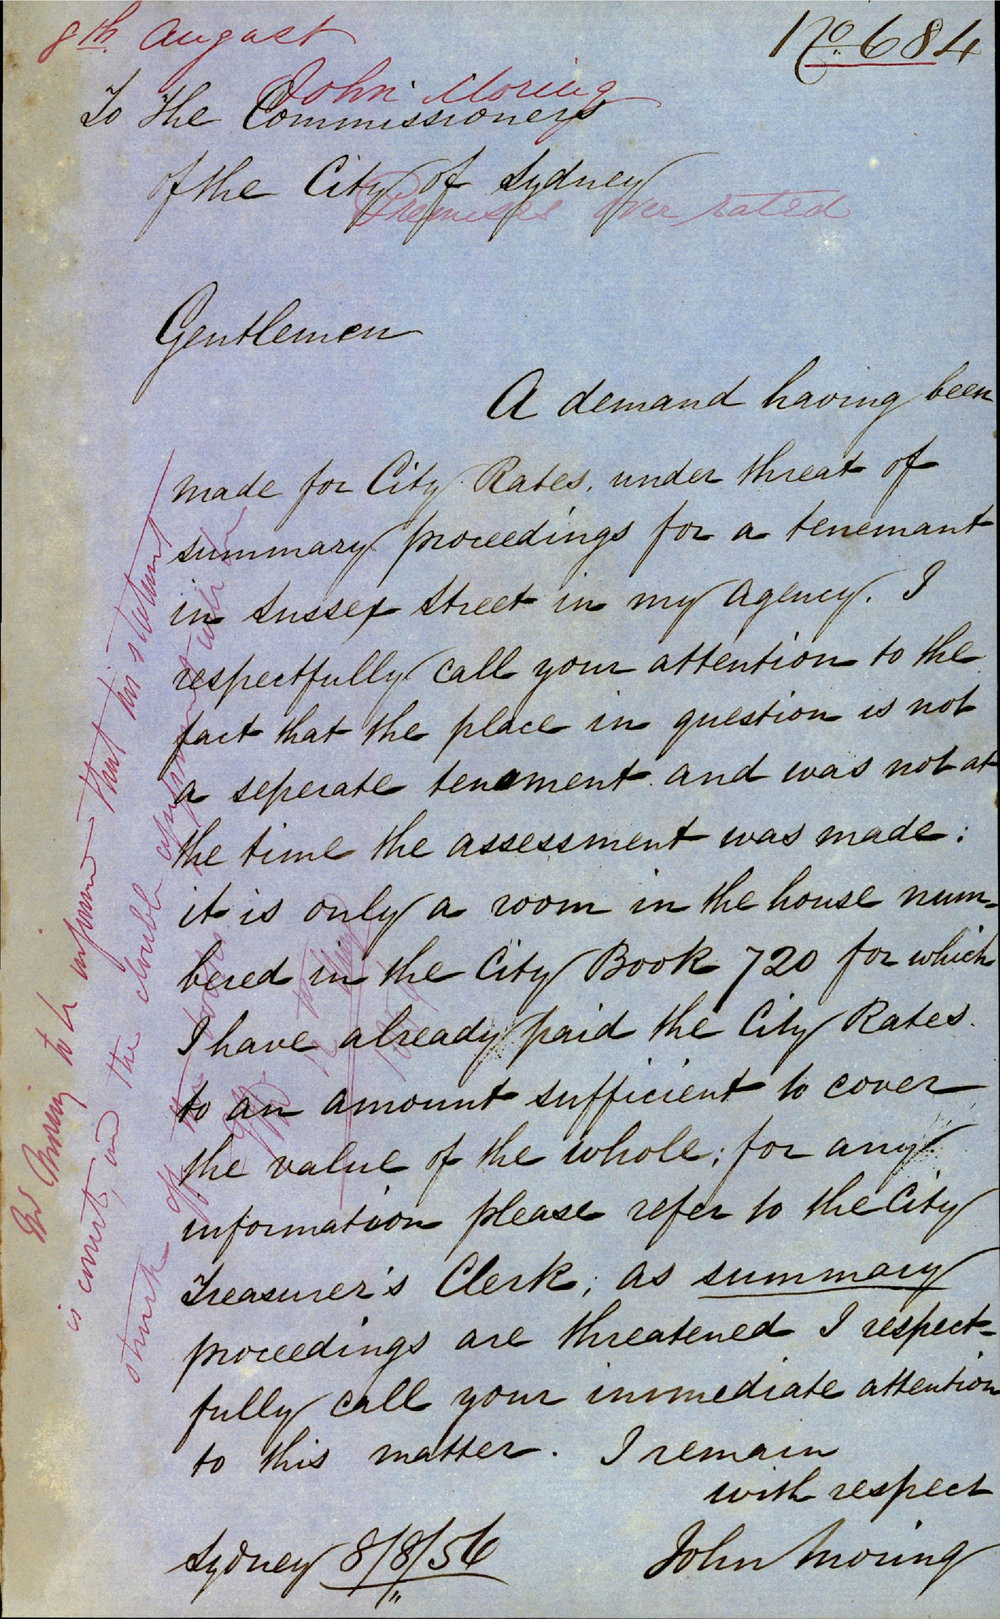 8th. August
No. 684
John Moring
To the Commissioners
of the City of Sydney
Premises over rated
Gentlemen
A demand having been
made for City Rates, under threat of
summary proceedings for a tenemant
in Sussex Street in my Agency. I
respectfully call your attention to the
fact that the place in question is not
a seperate tenement and was not at
the time the assessment was made:
it is only a room in the house num-
bered in the City Book 720 for which
I have already paid the City Rates.
to an amount sufficient to cover
the value of the whole; for any
information please refer to the City
Treasurer's Clerk; as summary
proceedings are threatened I respect-
fully call your immediate attention
to this matter. I remain
with respect
John Moring
Sydney 8/8/56
Mr Moring to be informed that his statement
is correct, and the double assessment will be
struck off the books.